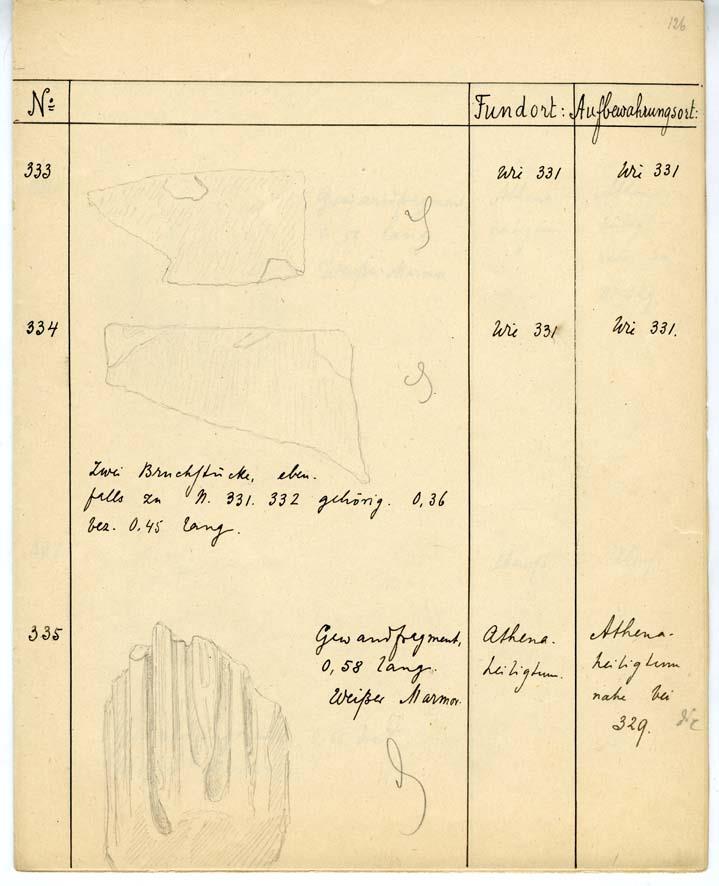 126
No: Fundort: Aufbewahrungsort:
333 Wie 331 Wie 331
334 Wie 331 Wie 331.
Zwei Bruchstücke, eben-
falls zu N. 331. 332 gehörig. 0,36
bez. 0.45 lang.
335 Gewandfragment, Athena- Athena-
0,58 lang. heiligtum. heiligtum
Weißer Marmor. nahe bei
329.